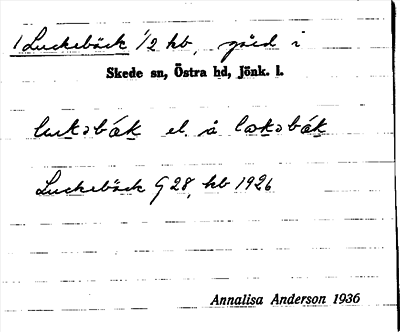 1 Luckebäck 1/2 hb, gård i
Skede sn, Östra hd, Jönk. l.
lukəbák el. å lokəbák
Luckebäck G 28, kb 1926
Annalisa Anderson 1936